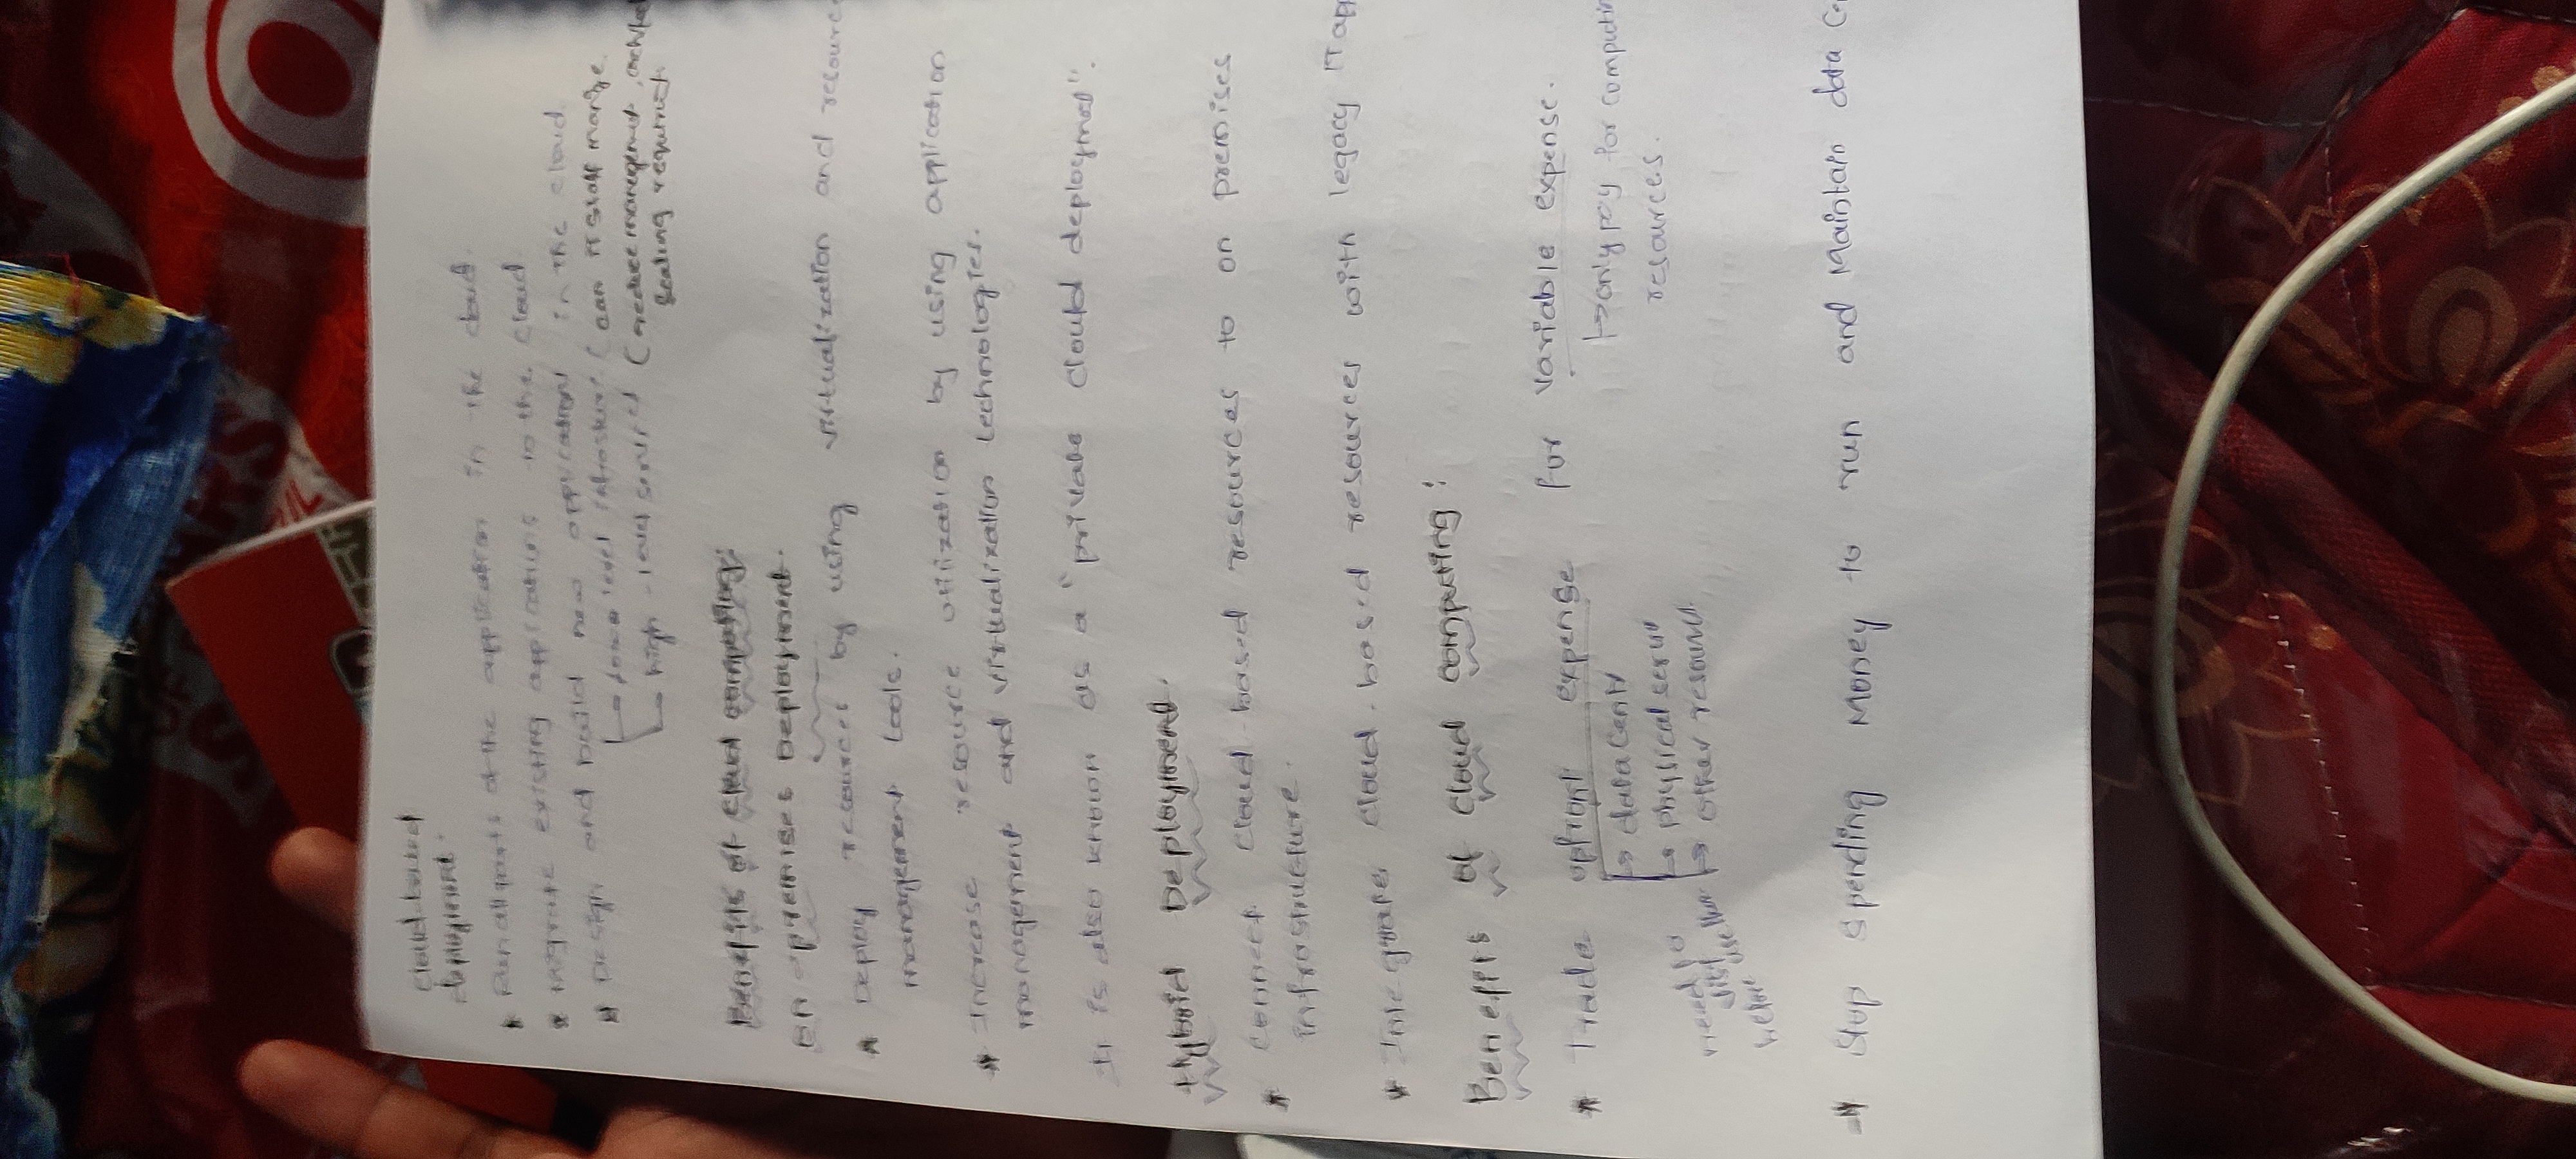 cloud-based
deployment:
* Run all parts of the application in the cloud.
* migrate existing applications to the cloud.
* Design and build new applications in the cloud.
↳ lower level infrastructure ( can IT staff manage.
↳ high - level services (
scaling
Benefits of cloud computing:
on premises Deployment.
* Deploy resources by using virtualization and resource
management tools.
* Increase resource utilization by using application
management and virtualization technologies.
It is also known as a "private clould deployment".
Hyboid Deployment.
* connect cloud-based resources to on premises
infrastructure.
* Integrate cloud-based resources with legacy IT app
Benefits of cloud computing:
* Trade upfront expense for variable expense.
↳ data cent
↳ physical server
↳ other resource
↳ only pay for computin
resources.
→ Stop spending Money to run and Maintain data Ce